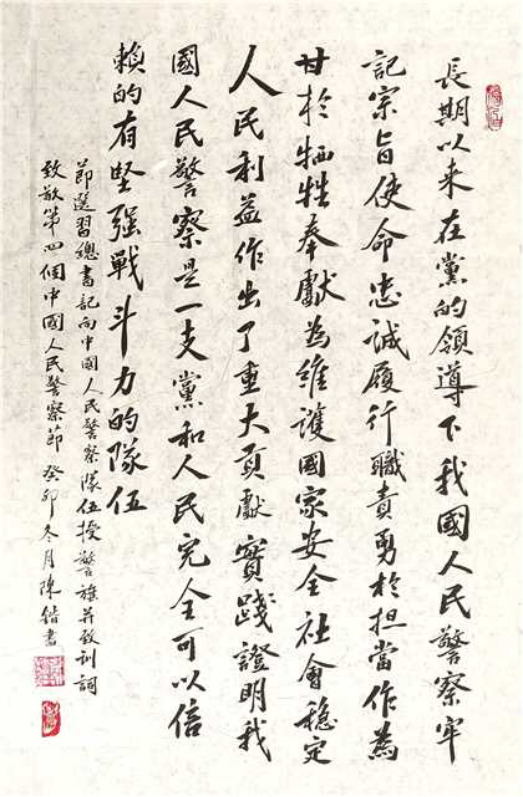 長期以来在黨的領導下我國人民警察牢
記宗旨使命忠誠履行職責勇於担當作為
甘於牺牲奉獻為維護國家安全社會穩定
人民利益作出了重大貢獻實踐證明我
國人民警察是一支黨和人民完全可以信
賴的有堅强戰斗力的隊伍
節選習總書記向中國人民警察隊伍授警旗并致训詞
致敬第四個中國人民警察節 癸卯冬月陳鍇書